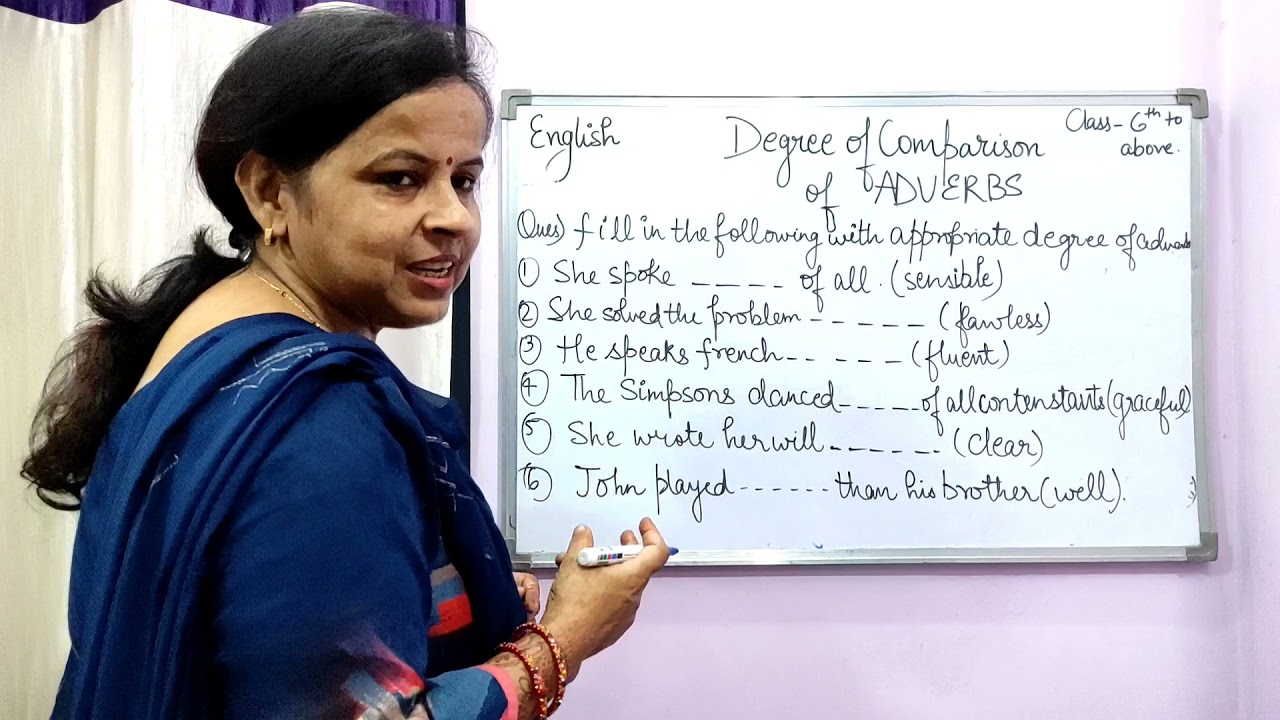 English
Degree of Comparison
of ADVERBS
Class - 6th to
above.
Ques) fill in the following with appropriate degree of adverbs
① She spoke _ _ _ _ _ of all. (sensible)
② She solved the problem - - - - - - (fawless)
③ He speaks french - - - - - (fluent)
④ The Simpsons danced - - - - - of all contenstants (graceful)
⑤ She wrote her will - - - - - -. (clear)
⑥ John played - - - - - - than his brother (well).